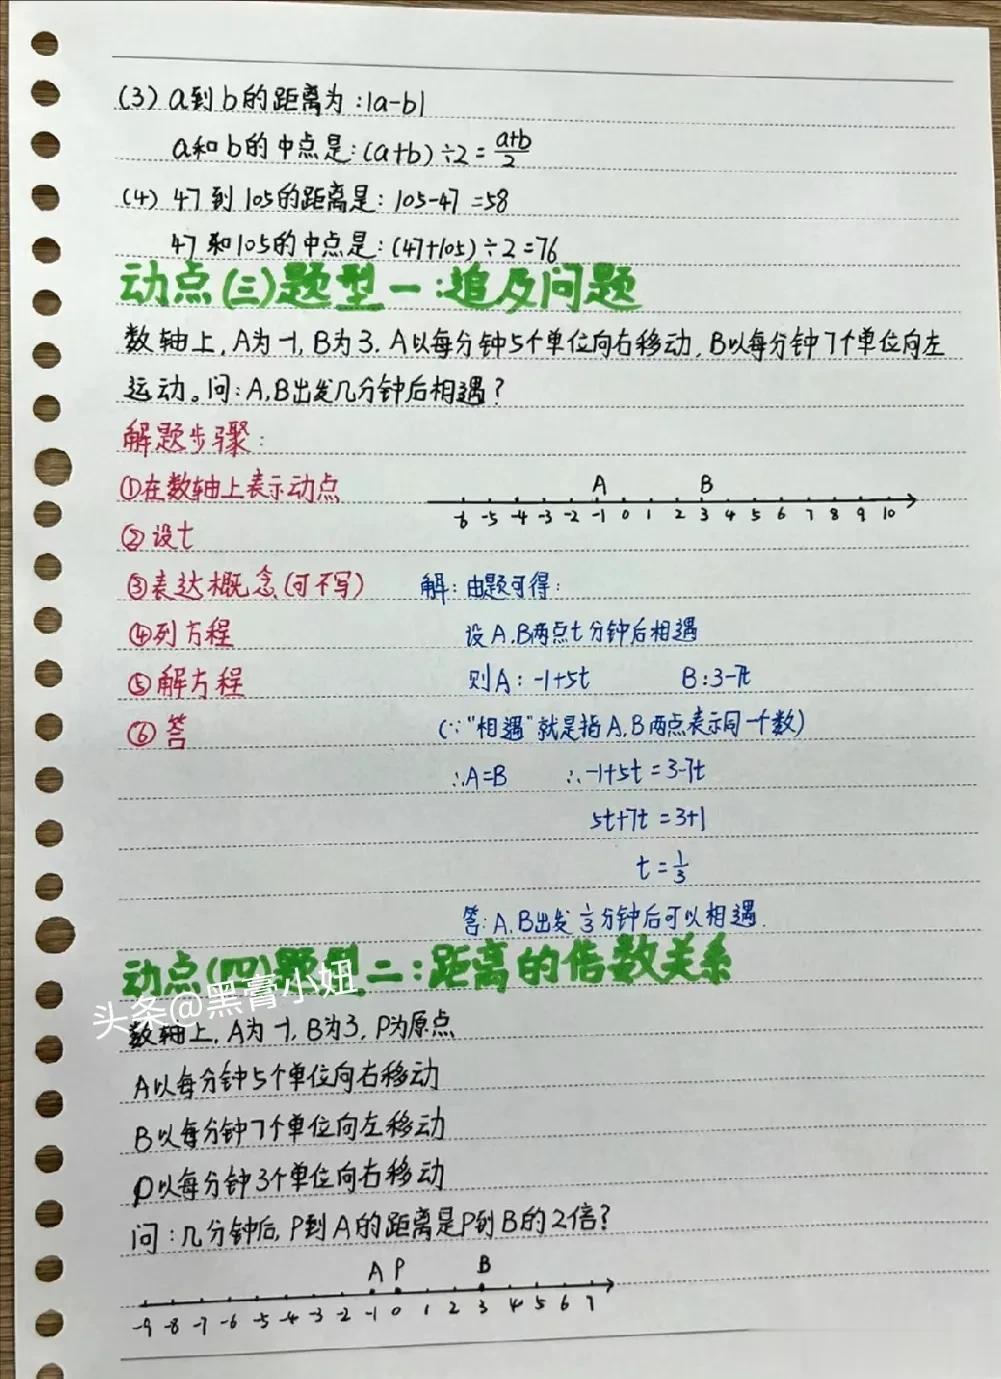 (3) a到b的距离为:|a-b|
a和b的中点是:(a+b)÷2=\frac{a+b}{2}
(4) 47到105的距离是:105-47=58
47和105的中点是:(47+105)÷2=76
动点(三)题型一:追及问题
数轴上,A为-1,B为3.A以每分钟5个单位向右移动,B以每分钟7个单位向左
运动。问:A,B出发几分钟后相遇?
解题步骤:
①在数轴上表示动点
A B
-6 -5 -4 -3 -2 -1 0 1 2 3 4 5 6 7 8 9 10
②设t
③表达概念(可不写)
解:由题可得:
④列方程
设A.B两点t分钟后相遇
⑤解方程
则A:-1+5t B:3-7t
⑥答
(∵"相遇"就是指A.B两点表示同一个数)
∴A=B ∴-1+5t=3-7t
5t+7t=3+1
t=\frac{1}{3}
答:A.B出发\frac{1}{3}分钟后可以相遇.
动点(四)题型二:距离的倍数关系
头条@黑膏小妞
数轴上,A为-1,B为3,P为原点
A以每分钟5个单位向右移动
B以每分钟7个单位向左移动
P以每分钟3个单位向右移动
问:几分钟后,P到A的距离是P到B的2倍?
A P B
-9 -8 -7 -6 -5 -4 -3 -2 -1 0 1 2 3 4 5 6 7